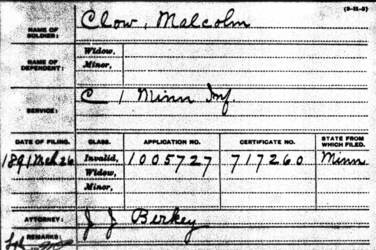 (3-21-5)
NAME OF SOLDIER: Clow, Malcolm
NAME OF DEPENDENT: Widow,
Minor,
SERVICE: C 1 Minn Inf.
DATE OF FILING. CLASS. APPLICATION NO. CERTIFICATE NO. STATE FROM WHICH FILED.
1891 Mch 26 Invalid, 1005727 717260 Minn
Widow,
Minor,
ATTORNEY: J J Berkey
REMARKS: